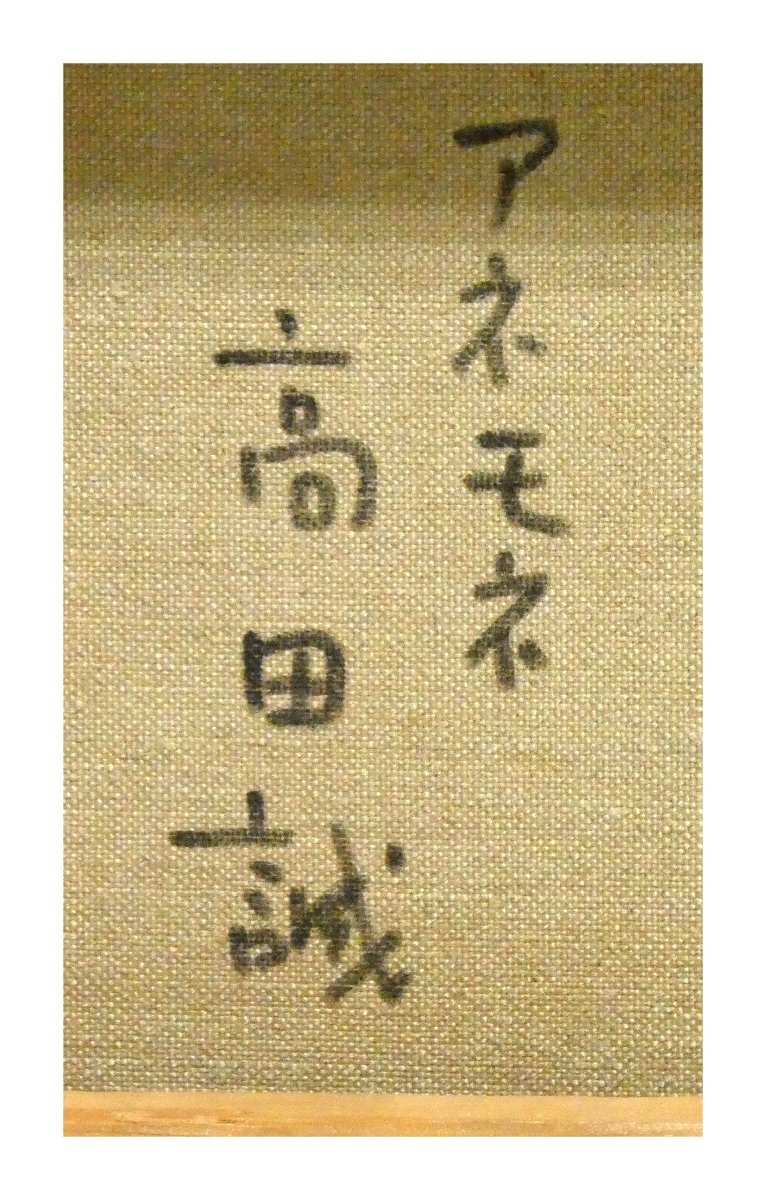 アネモネ
高田誠